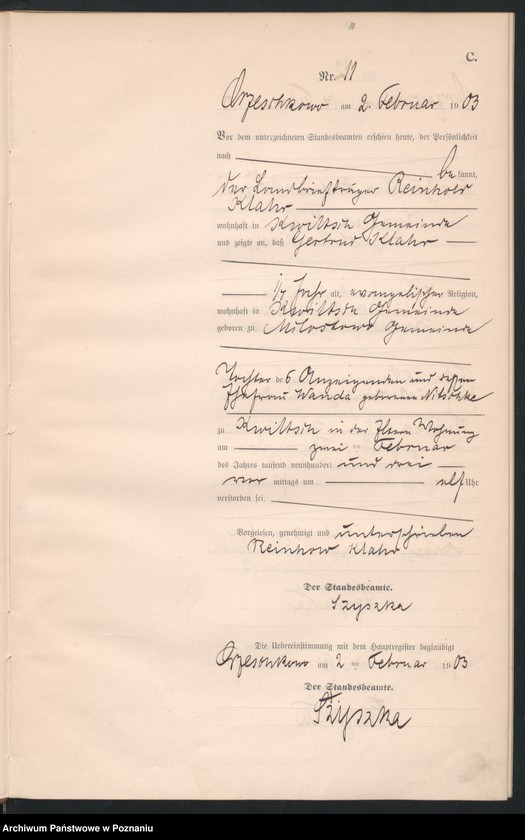 "
C.
Nr. 11
Orzeschkowo am 2. Februar 1903
Vor dem unterzeichneten Standesbeamten erschien heute, der Persönlichkeit
nach be kannt,
der Landbriefträger Reinhold
Klahr
wohnhaft in Kwiltsch Gemeinde
und zeigte an, daß Gertrud Klahr
Jahr alt, evangelischer Religion,
wohnhaft in Kwiltsch Gemeinde
geboren zu Milostowo Gemeinde
Tochter des Anzeigenden und dessen
Ehefrau Wanda geborenen Nitschke
zu Kwiltsch in der Eltern Wohnung
am zwei ten Februar
des Jahres tausend neunhundert und drei
vor mittags um elf Uhr
verstorben sei.
Vorgelesen, genehmigt und unterschrieben
Reinhold Klahr
Der Standesbeamte.
Szyszka
Die Uebereinstimmung mit dem Hauptregister beglaubigt
Orzeschkowo am 2 ten Februar 1903
Der Standesbeamte.
Szyszka
Archiwum Państwowe w Poznaniu